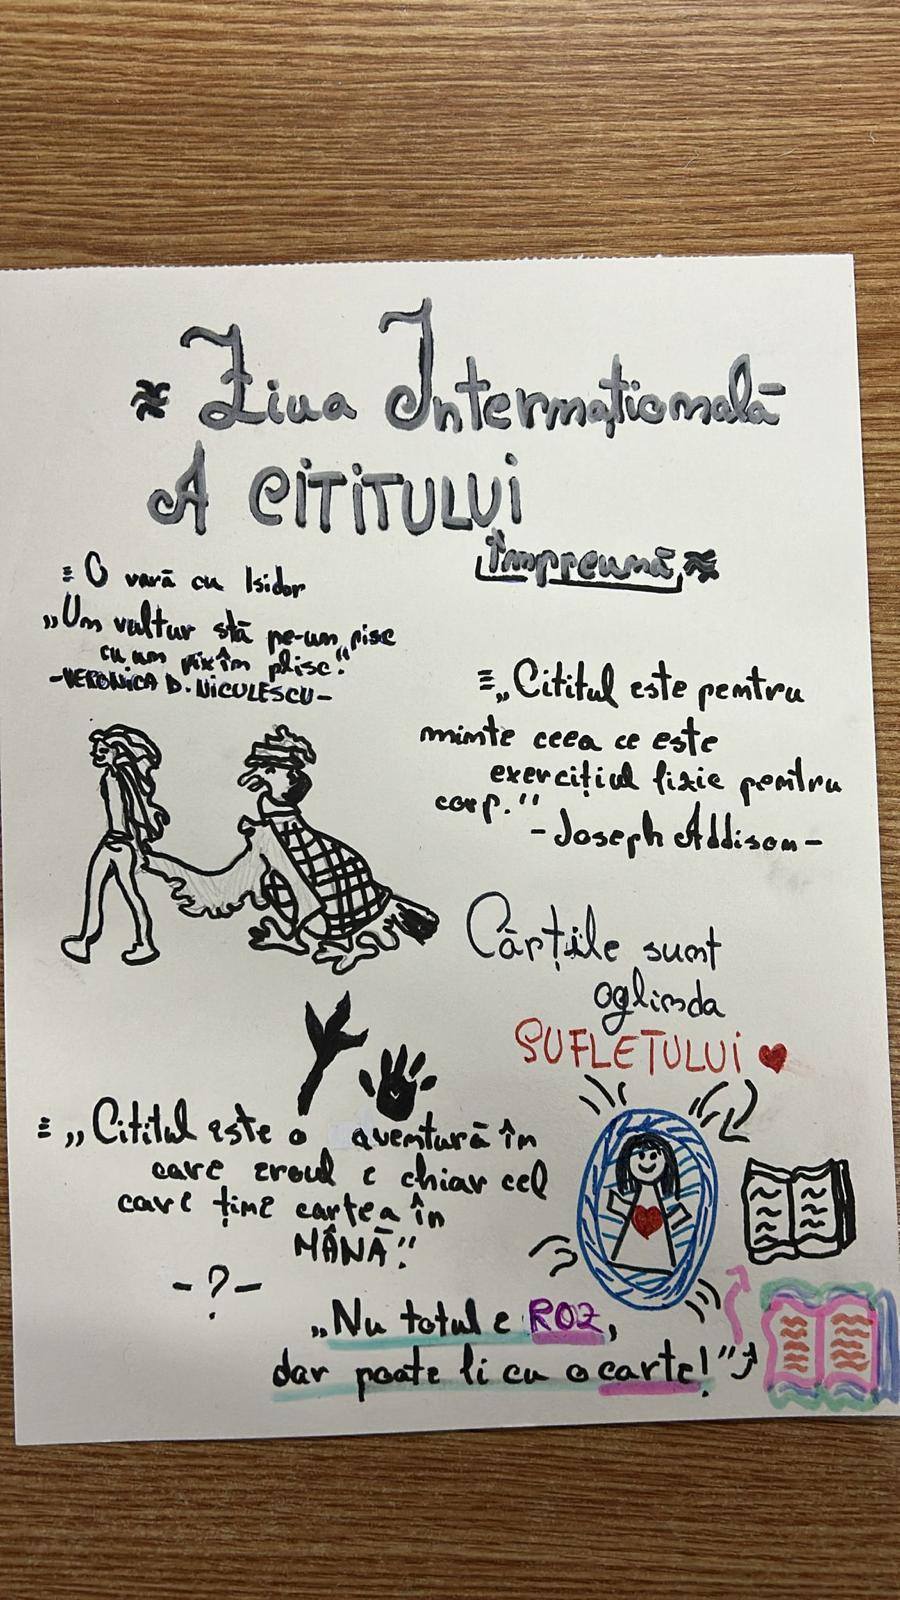 Ziua Internațională
A CITITULUI
Împreună
O vară cu Isidor
„Un vultur stă pe-un pisc
cu un pix în plisc."
-VERONICA D. NICULESCU-
„Cititul este pentru
minte ceea ce este
exercițiul fizic pentru
corp."
-Joseph Addison-
Cărțile sunt
oglinda
SUFLETULUI
„Cititul este o aventură în
care eroul e chiar cel
care ține cartea în
MÂNĂ"
-?-
„Nu totul e ROZ,
dar poate fi cu o carte!"